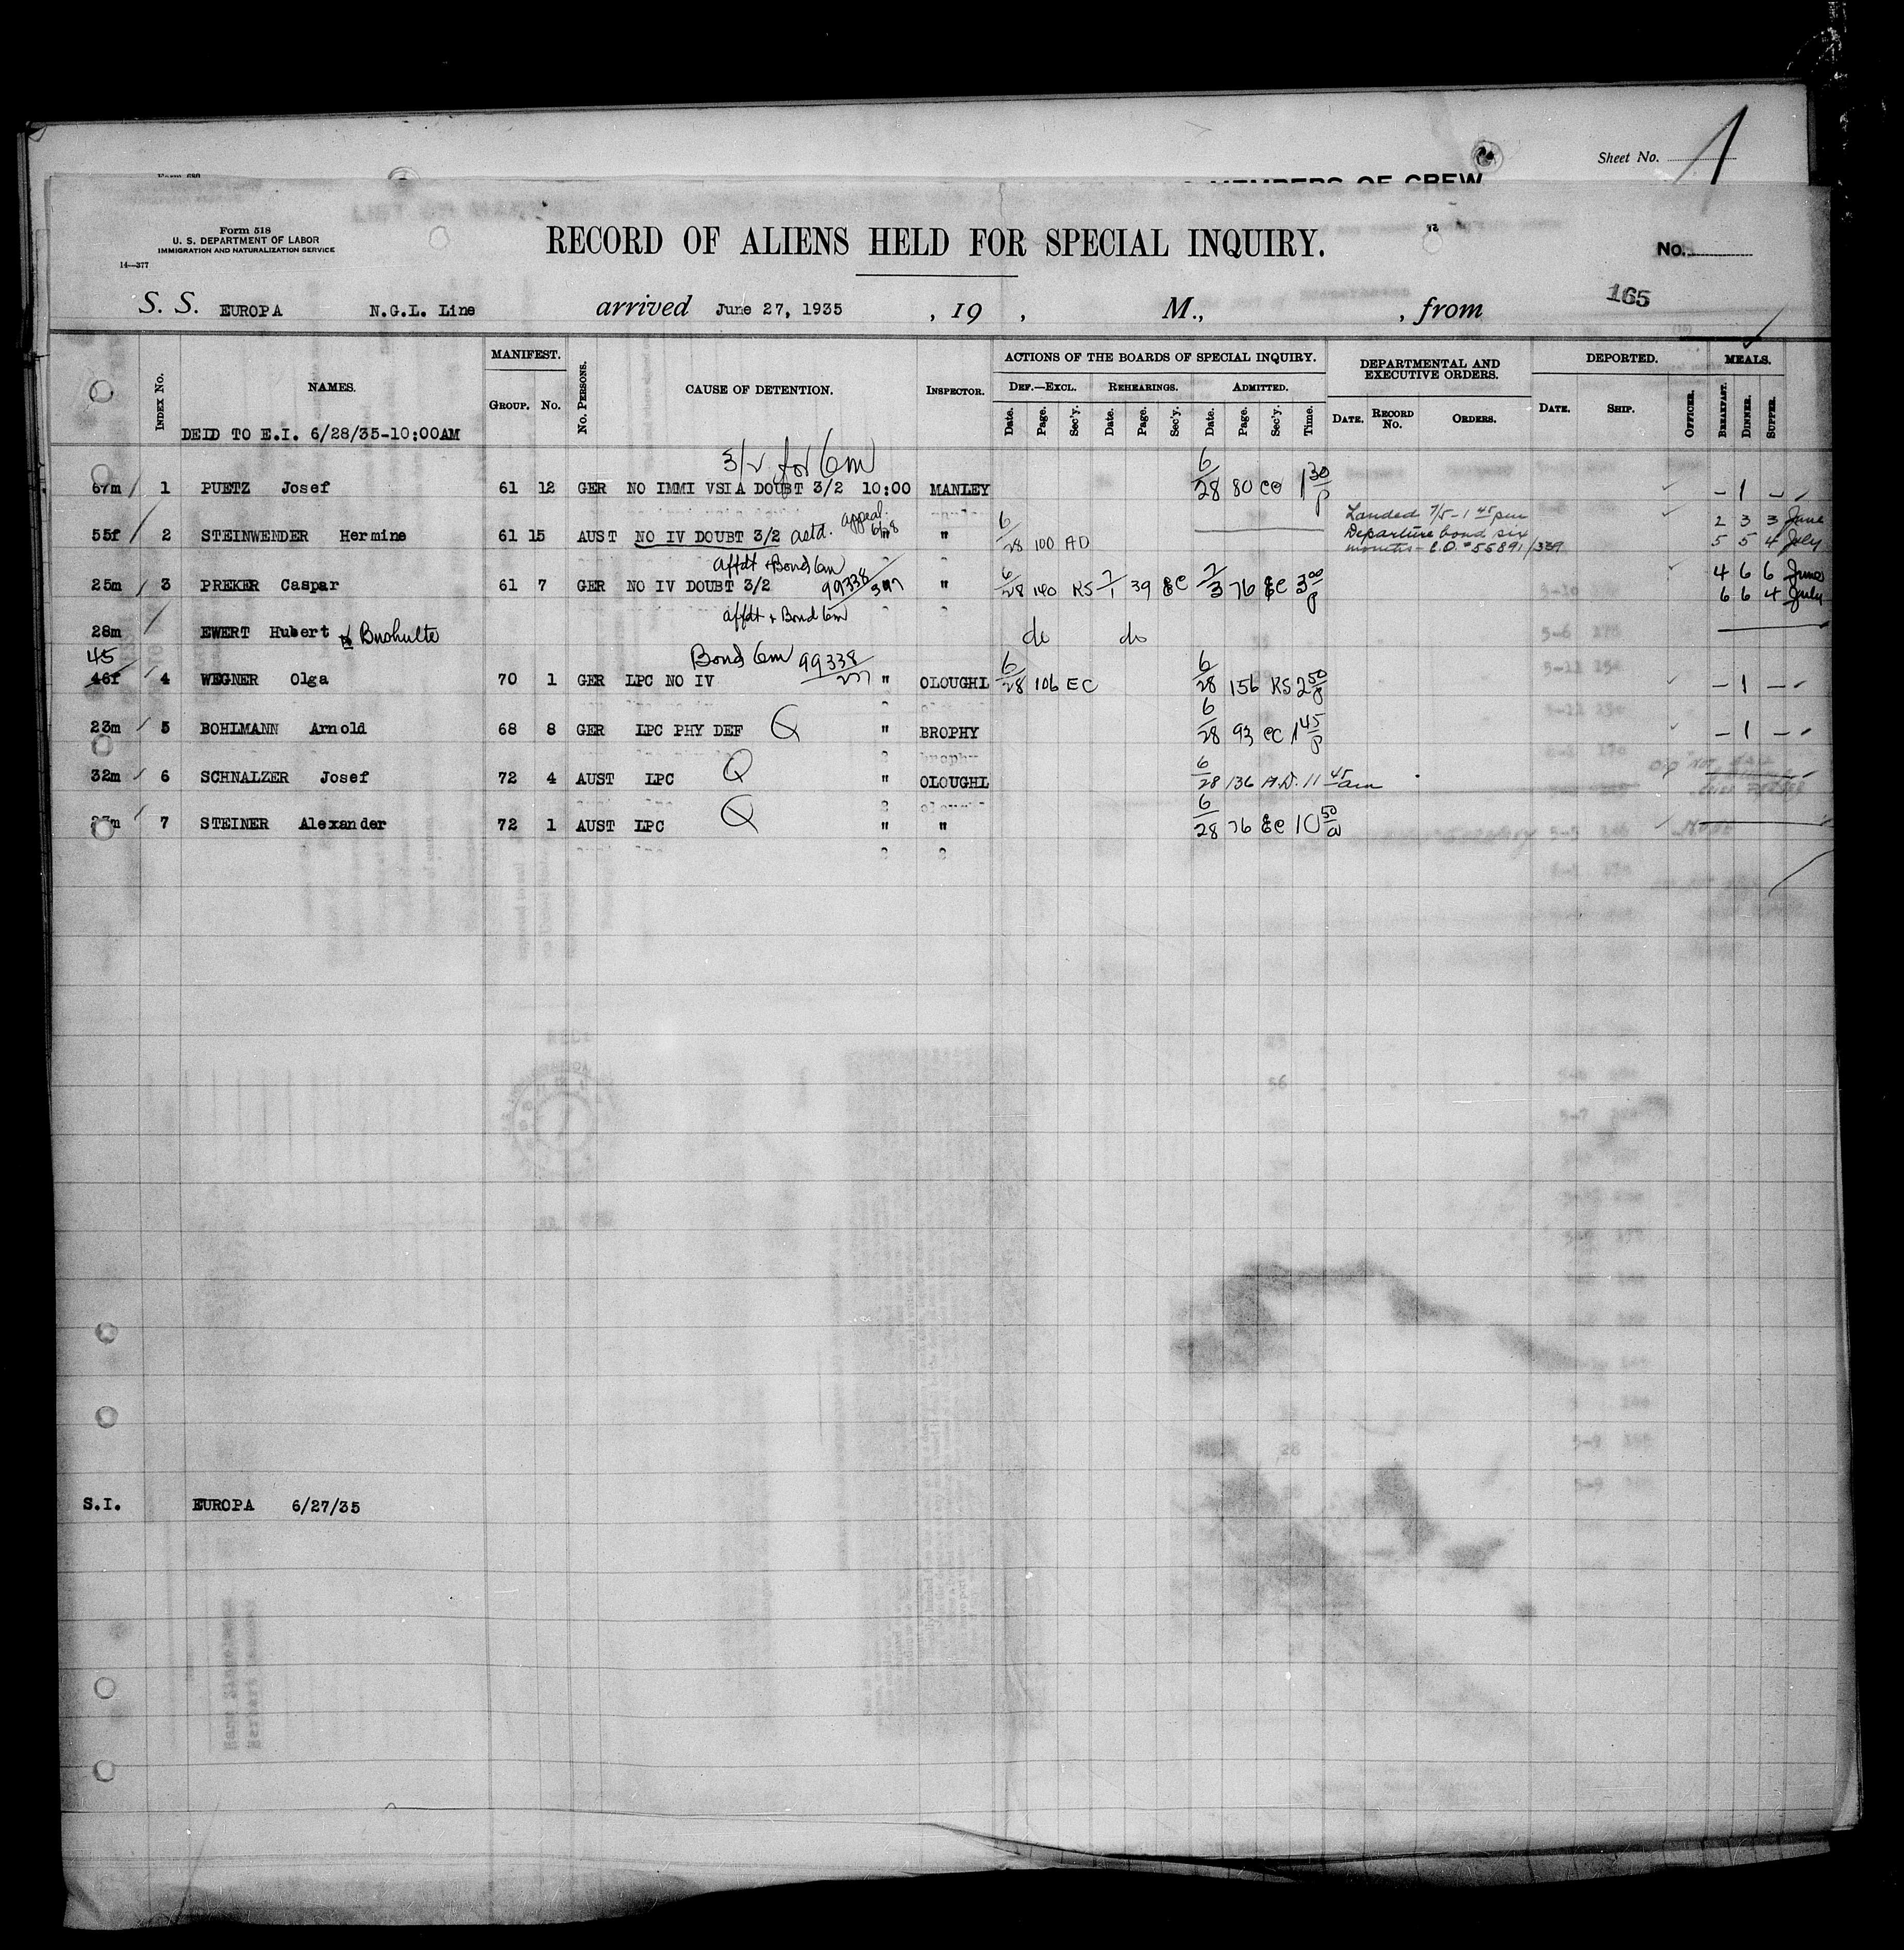 Sheet No. 1
MEMBERS OF CREW
Form 518
U. S. DEPARTMENT OF LABOR
IMMIGRATION AND NATURALIZATION SERVICE
14—377
RECORD OF ALIENS HELD FOR SPECIAL INQUIRY.
No.
165
S. S. EUROPA N.G.L. Line arrived June 27, 1935 , 19 , M., , from
INDEX No. NAMES. MANIFEST. GROUP. No. No. PERSONS. CAUSE OF DETENTION. INSPECTOR. ACTIONS OF THE BOARDS OF SPECIAL INQUIRY. DEPARTMENTAL AND EXECUTIVE ORDERS. DEPORTED. MEALS.
DEF.—EXCL. REHEARINGS. ADMITTED.
Date. Page. Sec'y. Date. Page. Sec'y. Date. Page. Sec'y. Time. DATE. RECORD No. ORDERS. DATE. SHIP. OFFICER. BREAKFAST. DINNER. SUPPER.
DEID TO E.I. 6/28/35-10:00AM
3/2 for 6m
67m 1 PUETZ Josef 61 12 GER NO IMMI VSIA DOUBT 3/2 10:00 MANLEY 6/28 80 CO 1 30 p – 1 –
55f 2 STEINWENDER Hermine 61 15 AUST NO IV DOUBT 3/2 " 6/28 100 AD 2 3 3 June
appeal 6/28
Landed 7/5-1 45 pm
Departure bond six
months - E.O. #55891/339
5 5 4 July
affdt + Bond 6m
25m 3 PREKER Caspar 61 7 GER NO IV DOUBT 3/2 99338/397 " " 6/28 140 KS 7/1 39 EC 7/3 76 EC 3 00 p 4 6 6 June
6 6 4 July
affdt + Bond 6m
28m EWERT Hubert do do
45
Bond 6m 99338/277
46f 4 WEGNER Olga 70 1 GER LPC NO IV " OLOUGHL 6/28 106 EC 6/28 156 KS 2 50 p – 1 –
23m 5 BOHLMANN Arnold 68 8 GER LPC PHY DEF " BROPHY 6/28 93 EC 1 45 p – 1 –
32m 6 SCHNALZER Josef 72 4 AUST LPC " OLOUGHL 6/28 136 A.D. 11 45 am
7 STEINER Alexander 72 1 AUST LPC " " 6/28 76 EC 10 50 a
S.I. EUROPA 6/27/35